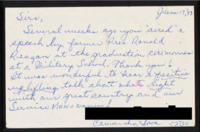 June 17, 93
Sirs,
Several weeks ago you aired a
speech by former Pres. Ronald
Reagan at the graduation ceremonies
at a Military School. Thank you!
It was wonderful to hear a positive
uplifting talk about what's right
with our great country and our
Service Men &
Camarillo